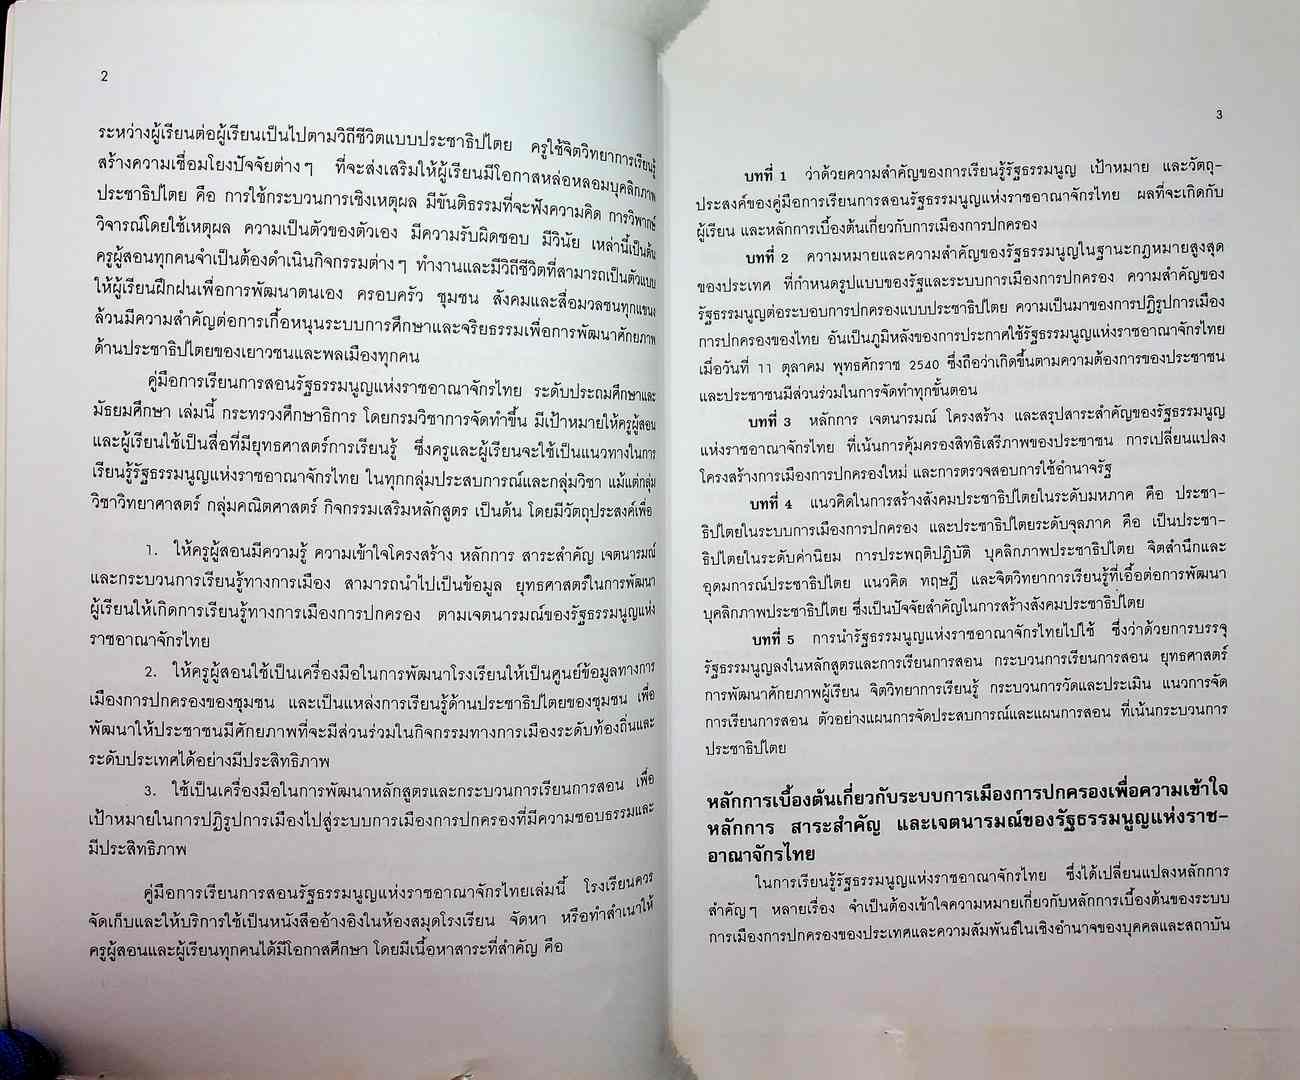 2
ระหว่างผู้เรียนต่อผู้เรียนเป็นไปตามวิถีชีวิตแบบประชาธิปไตย ครูใช้จิตวิทยาการเรียนรู้
สร้างความเชื่อมโยงปัจจัยต่างๆ ที่จะส่งเสริมให้ผู้เรียนมีโอกาสหล่อหลอมบุคลิกภาพ
ประชาธิปไตย คือ การใช้กระบวนการเชิงเหตุผล มีขันติธรรมที่จะฟังความคิด การวิพากษ์
วิจารณ์โดยใช้เหตุผล ความเป็นตัวของตัวเอง มีความรับผิดชอบ มีวินัย เหล่านี้เป็นต้น
ครูผู้สอนทุกคนจำเป็นต้องดำเนินกิจกรรมต่างๆ ทำงานและมีวิถีชีวิตที่สามารถเป็นตัวแบบ
ให้ผู้เรียนฝึกฝนเพื่อการพัฒนาตนเอง ครอบครัว ชุมชน สังคมและสื่อมวลชนทุกแขนง
ล้วนมีความสำคัญต่อการเกื้อหนุนระบบการศึกษาและจริยธรรมเพื่อการพัฒนาศักยภาพ
ด้านประชาธิปไตยของเยาวชนและพลเมืองทุกคน
คู่มือการเรียนการสอนรัฐธรรมนูญแห่งราชอาณาจักรไทย ระดับประถมศึกษาและ
มัธยมศึกษา เล่มนี้ กระทรวงศึกษาธิการ โดยกรมวิชาการจัดทำขึ้น มีเป้าหมายให้ครูผู้สอน
และผู้เรียนใช้เป็นสื่อที่มียุทธศาสตร์การเรียนรู้ ซึ่งครูและผู้เรียนจะใช้เป็นแนวทางในการ
เรียนรู้รัฐธรรมนูญแห่งราชอาณาจักรไทย ในทุกกลุ่มประสบการณ์และกลุ่มวิชา แม้แต่กลุ่ม
วิชาวิทยาศาสตร์ กลุ่มคณิตศาสตร์ กิจกรรมเสริมหลักสูตร เป็นต้น โดยมีวัตถุประสงค์เพื่อ
1. ให้ครูผู้สอนมีความรู้ ความเข้าใจโครงสร้าง หลักการ สาระสำคัญ เจตนารมณ์
และกระบวนการเรียนรู้ทางการเมือง สามารถนำไปเป็นข้อมูล ยุทธศาสตร์ในการพัฒนา
ผู้เรียนให้เกิดการเรียนรู้ทางการเมืองการปกครอง ตามเจตนารมณ์ของรัฐธรรมนูญแห่ง
ราชอาณาจักรไทย
2. ให้ครูผู้สอนใช้เป็นเครื่องมือในการพัฒนาโรงเรียนให้เป็นศูนย์ข้อมูลทางการ
เมืองการปกครองของชุมชน และเป็นแหล่งการเรียนรู้ด้านประชาธิปไตยของชุมชน เพื่อ
พัฒนาให้ประชาชนมีศักยภาพที่จะมีส่วนร่วมในกิจกรรมทางการเมืองระดับท้องถิ่นและ
ระดับประเทศได้อย่างมีประสิทธิภาพ
3. ใช้เป็นเครื่องมือในการพัฒนาหลักสูตรและกระบวนการเรียนการสอน เพื่อ
เป้าหมายในการปฏิรูปการเมืองไปสู่ระบบการเมืองการปกครองที่มีความชอบธรรมและ
มีประสิทธิภาพ
คู่มือการเรียนการสอนรัฐธรรมนูญแห่งราชอาณาจักรไทยเล่มนี้ โรงเรียนควร
จัดเก็บและให้บริการใช้เป็นหนังสืออ้างอิงในห้องสมุดโรงเรียน จัดหา หรือทำสำเนาให้
ครูผู้สอนและผู้เรียนทุกคนได้มีโอกาสศึกษา โดยมีเนื้อหาสาระที่สำคัญ คือ
3
บทที่ 1 ว่าด้วยความสำคัญของการเรียนรู้รัฐธรรมนูญ เป้าหมาย และวัตถุ-
ประสงค์ของคู่มือการเรียนการสอนรัฐธรรมนูญแห่งราชอาณาจักรไทย ผลที่จะเกิดกับ
ผู้เรียน และหลักการเบื้องต้นเกี่ยวกับการเมืองการปกครอง
บทที่ 2 ความหมายและความสำคัญของรัฐธรรมนูญในฐานะกฎหมายสูงสุด
ของประเทศ ที่กำหนดรูปแบบของรัฐและระบบการเมืองการปกครอง ความสำคัญของ
รัฐธรรมนูญต่อระบอบการปกครองแบบประชาธิปไตย ความเป็นมาของการปฏิรูปการเมือง
การปกครองของไทย อันเป็นภูมิหลังของการประกาศใช้รัฐธรรมนูญแห่งราชอาณาจักรไทย
เมื่อวันที่ 11 ตุลาคม พุทธศักราช 2540 ซึ่งถือว่าเกิดขึ้นตามความต้องการของประชาชน
และประชาชนมีส่วนร่วมในการจัดทำทุกขั้นตอน
บทที่ 3 หลักการ เจตนารมณ์ โครงสร้าง และสรุปสาระสำคัญของรัฐธรรมนูญ
แห่งราชอาณาจักรไทย ที่เน้นการคุ้มครองสิทธิเสรีภาพของประชาชน การเปลี่ยนแปลง
โครงสร้างการเมืองการปกครองใหม่ และการตรวจสอบการใช้อำนาจรัฐ
บทที่ 4 แนวคิดในการสร้างสังคมประชาธิปไตยในระดับมหภาค คือ ประชา-
ธิปไตยในระบบการเมืองการปกครอง และประชาธิปไตยระดับจุลภาค คือ เป็นประชา-
ธิปไตยในระดับค่านิยม การประพฤติปฏิบัติ บุคลิกภาพประชาธิปไตย จิตสำนึกและ
อุดมการณ์ประชาธิปไตย แนวคิด ทฤษฎี และจิตวิทยาการเรียนรู้ที่เอื้อต่อการพัฒนา
บุคลิกภาพประชาธิปไตย ซึ่งเป็นปัจจัยสำคัญในการสร้างสังคมประชาธิปไตย
บทที่ 5 การนำรัฐธรรมนูญแห่งราชอาณาจักรไทยไปใช้ ซึ่งว่าด้วยการบรรจุ
รัฐธรรมนูญลงในหลักสูตรและการเรียนการสอน กระบวนการเรียนการสอน ยุทธศาสตร์
การพัฒนาศักยภาพผู้เรียน จิตวิทยาการเรียนรู้ กระบวนการวัดและประเมิน แนวการจัด
การเรียนการสอน ตัวอย่างแผนการจัดประสบการณ์และแผนการสอน ที่เน้นกระบวนการ
ประชาธิปไตย
หลักการเบื้องต้นเกี่ยวกับระบบการเมืองการปกครองเพื่อความเข้าใจ
หลักการ สาระสำคัญ และเจตนารมณ์ของรัฐธรรมนูญแห่งราช-
อาณาจักรไทย
ในการเรียนรู้รัฐธรรมนูญแห่งราชอาณาจักรไทย ซึ่งได้เปลี่ยนแปลงหลักการ
สำคัญๆ หลายเรื่อง จำเป็นต้องเข้าใจความหมายเกี่ยวกับหลักการเบื้องต้นของระบบ
การเมืองการปกครองของประเทศและความสัมพันธ์ในเชิงอำนาจของบุคคลและสถาบัน